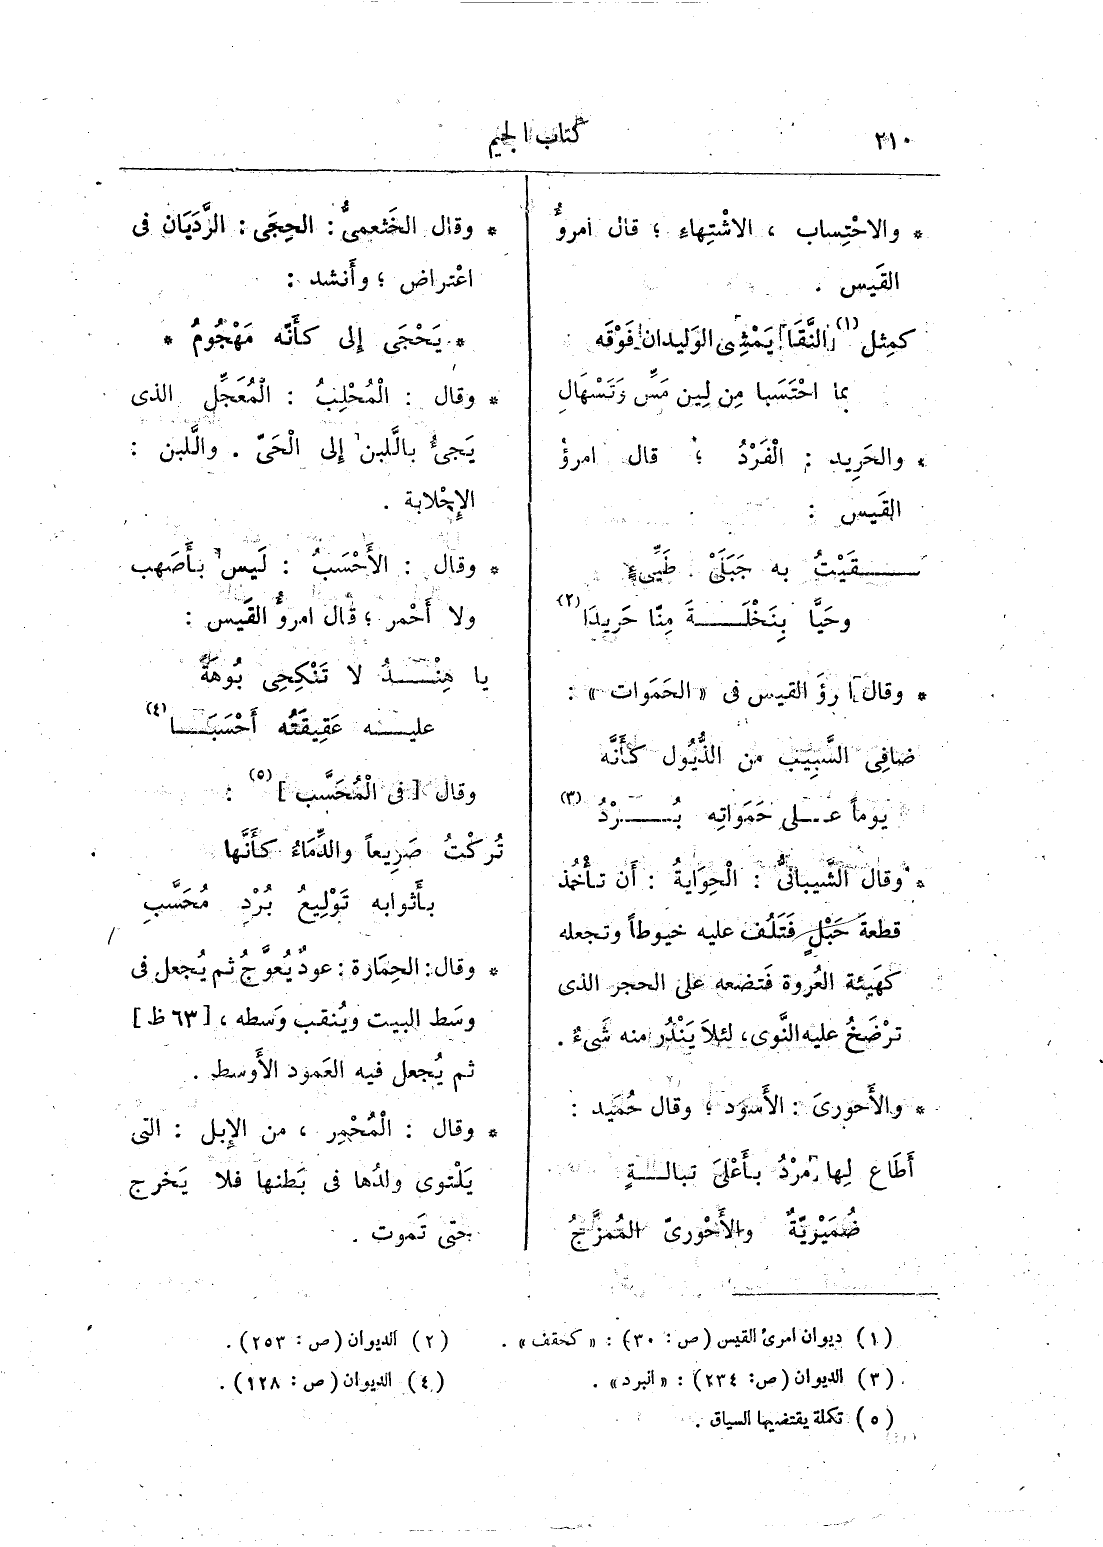 ٢١٠
كتاب الجيم
* والاحْتِساب ، الاشْتِهاء ؛ قال امرؤُ
القَيس .
كمِثل (١) النَّقَا يَمْشِى الوَليدان فَوْقَه
بما احْتَسَبا مِن لِين مَسٍّ وَتَسْهَالِ
* والحَرِيد : الْفَرْدُ ؛ قال امرؤْ
القَيس :
سَـقَيْتُ به جَبَلَىْ طَيِّىءٍ
وحَيًّا بِنَخْلَـةَ مِنَّا حَرِيدَا (٢)
* وقال ا رؤَ القيس فى «الحَمَوات» :
ضافِى السَّبِيب من الذُّيُول كأَنَّه
يوماً عـلى حَمَواتِه بُـرْدُ (٣)
* وقال الشَّيبانىُّ : الْحِوَايةُ : أَن تأْخُذ
قطعةَ حَبْلٍ فَتَلُف عليه خيوطاً وتجعله
كهَيئة العُروة فَتضعه على الحجر الذى
تَرْضَخُ عليه النَّوى، لئلاَ يَنْدُر منه شَىءٌ .
* والأَحورىّ : الأَسود ؛ وقال حُميد :
أَطَاع لها مَرْدُ بأَعْلىَ تبالـةٍ
ضُمَيْريّةٌ والأَحْورىّ المُمزَّجُ
* وقال الخَثعمىُّ : الحِجَى : الرَّدَيَان فى
اعْتراض ؛ وأَنشد :
* يَحْجَى إلى كأَنّه مَهْجُومُ *
* وقال : الْمُحْلِبُ : الْمُعَجِّل الذى
يَجىُٔ باللبن إلى الْحَىّ . واللبن :
الإِحْلابة .
* وقال : الأَحْسَبُ : لَيس بأَصهب
ولا أَحْمر ؛ قال امرؤُ القَيس :
يا هِنْـدُ لا تَنْكِحِى بُوهَةً
عليـه عَقِيقَتُه أَحْسَبَـا (٤)
وقال [فى الْمُحَسَّب] (٥) :
تُركْتُ صَرِيعاً والدِّمَاءُ كأَنَّها
بأَثوابه تَوْلِيعُ بُرْدٍ مُحَسَّبِ
* وقال: الحِمَارة : عودٌ يُعوَّجُ ثم يُجعل فى
وسَط البيت ويُنقب وَسطه ، [٦٣ ظ]
ثم يُجعل فيه العَمود الأَوسط .
* وقال : الْمُحْمِر ، من الإِبل : التى
يَلْتوى ولدُها فى بَطنها فلا يَخرج
حتى تَموت .
(١) ديوان امرئ القيس (ص : ٣٠) : «كحقف» .
(٢) الديوان (ص : ٢٥٣) .
(٣) الديوان (ص : ٢٣٤) : «البرد» .
(٤) الديوان (ص : ١٢٨) .
(٥) تكملة يقتضيها السياق .